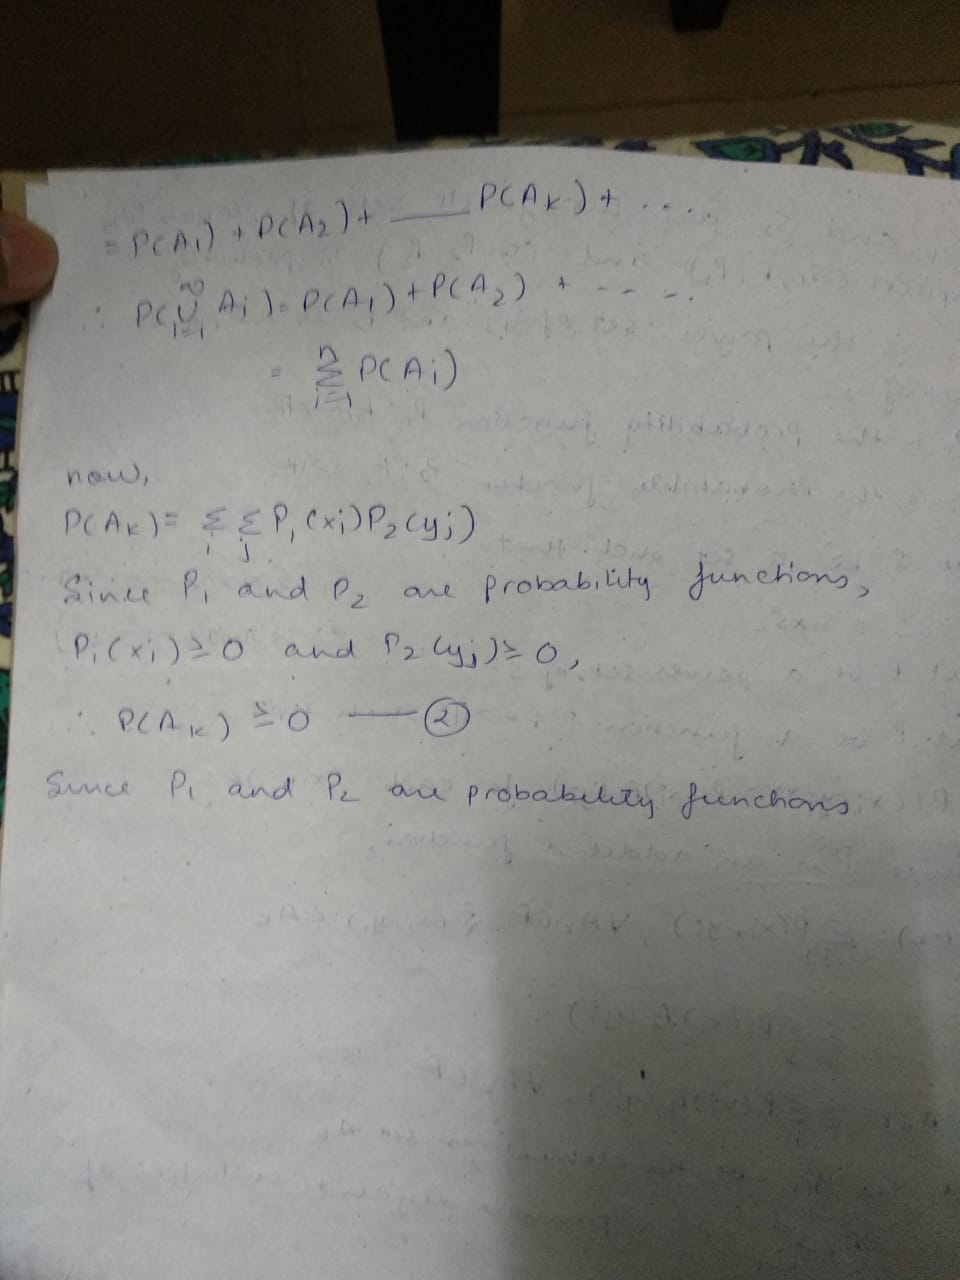 = P(A₁) + P(A₂) + —— P(Aₖ) + ....
∴ P(⋃ᵢ₌₁^∞ Aᵢ) = P(A₁) + P(A₂) + - - - .
= Σᵢ₌₁ⁿ P(Aᵢ)
now,
P(Aₖ) = Σᵢ Σⱼ P₁(xᵢ)P₂(yⱼ)
Since P₁ and P₂ are probability functions,
P₁(xᵢ) ≥ 0 and P₂(yⱼ) ≥ 0,
∴ P(Aₖ) ≥ 0 —— ②
Since P₁ and P₂ are probability functions